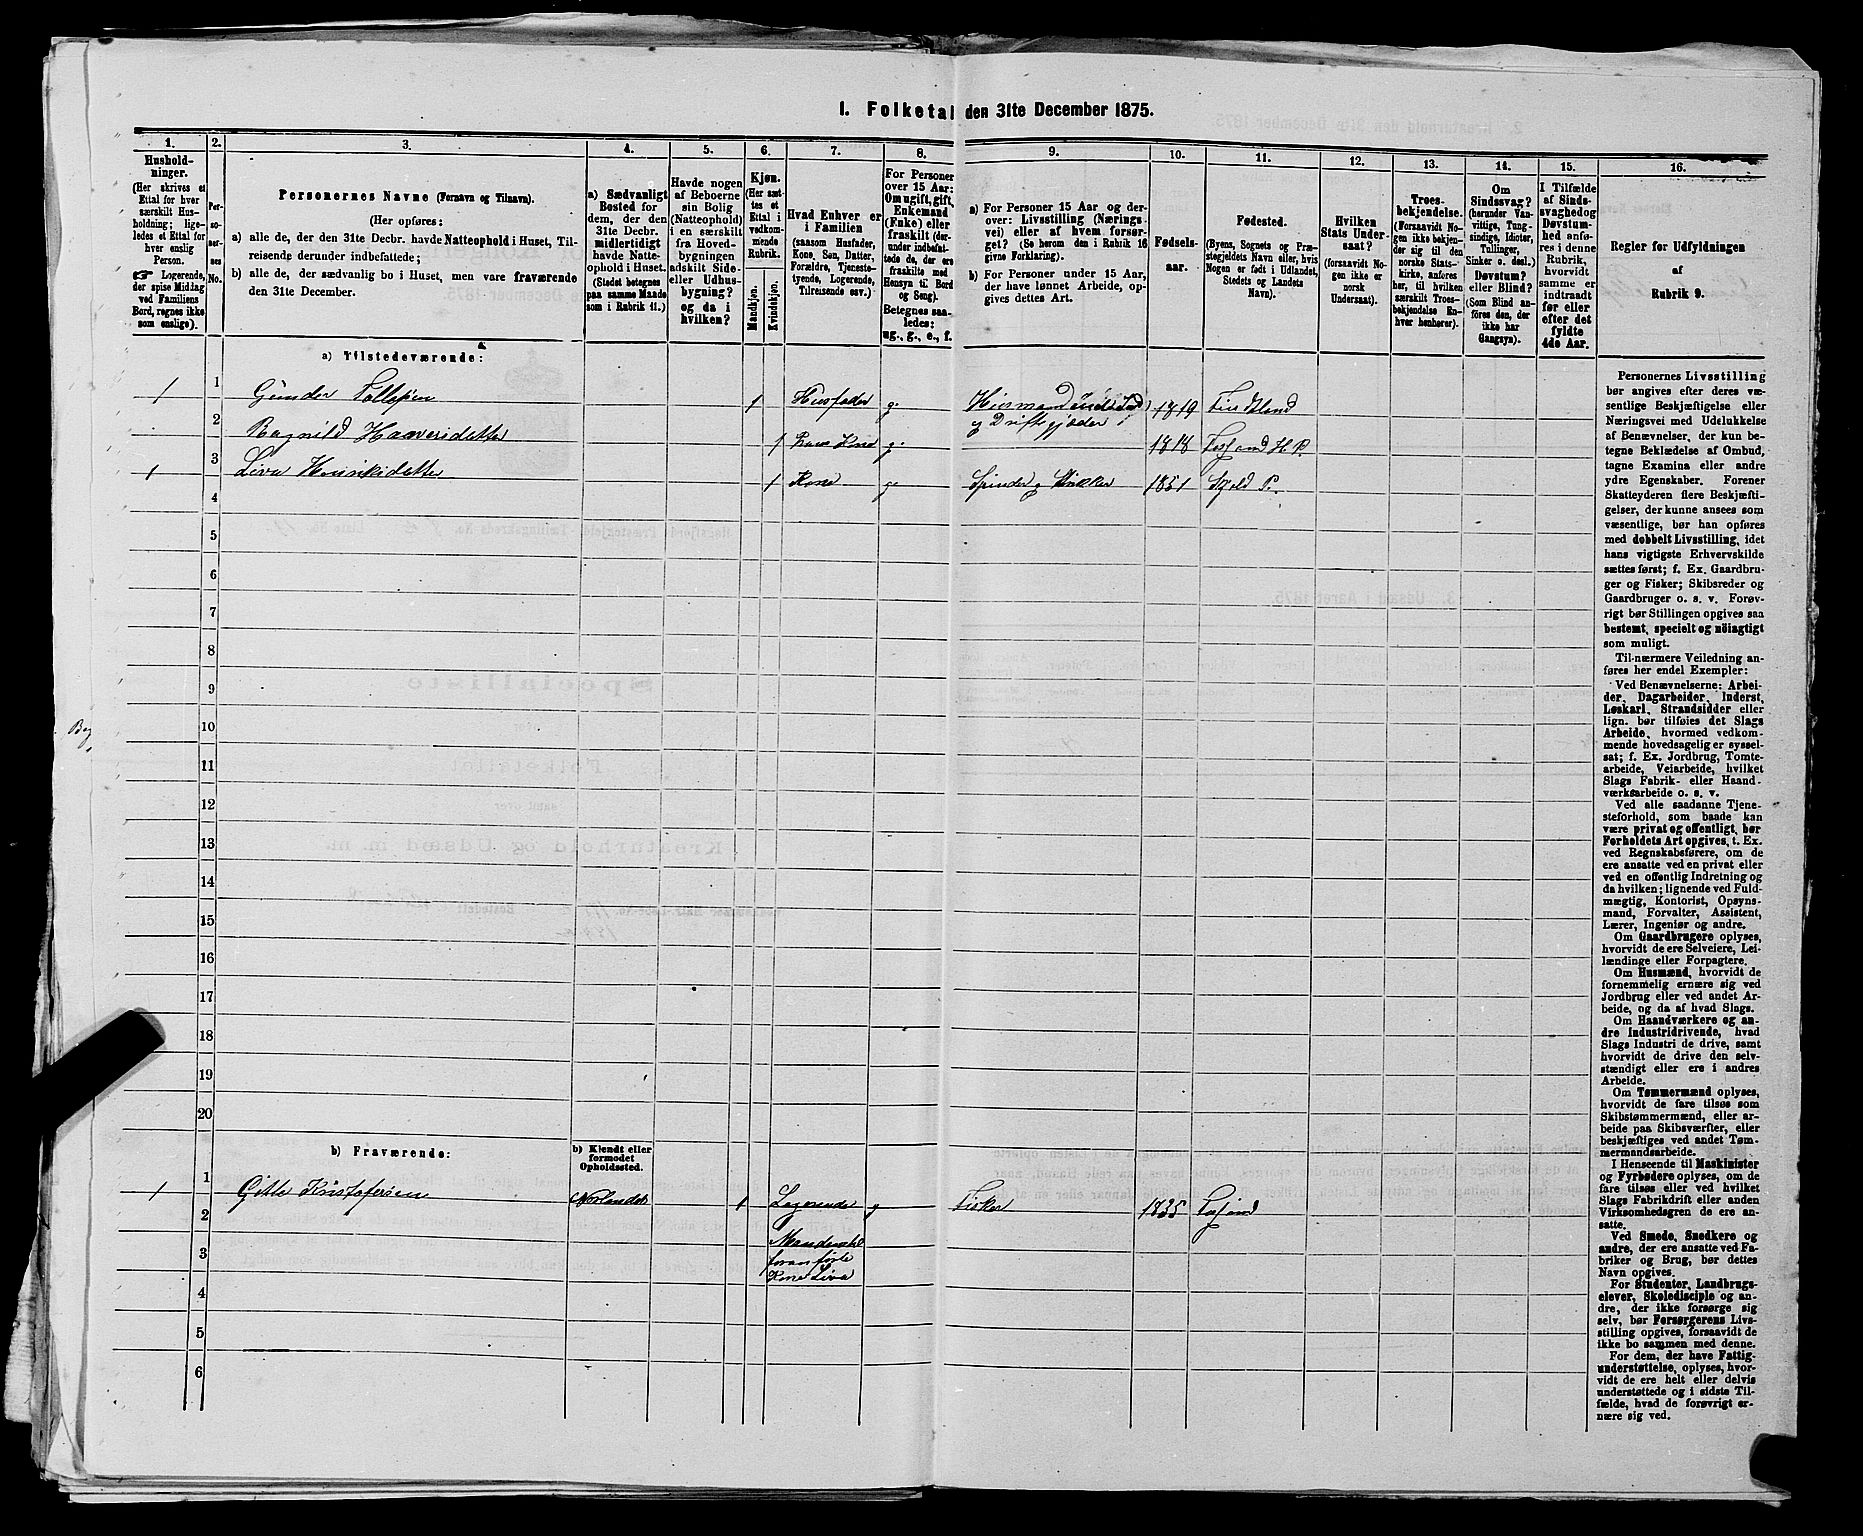 I. Folketal den 31te December 1875.
1.
2.
3.
4.
5.
6.
7.
8.
9.
10.
11.
12.
13.
14.
15.
16.
Hushold-
ninger.
(Her skrives et
Ettal for hver
særskilt Hus-
holdning; lige-
ledes et Ettal for
hver enslig
Person.
☞ Logerende,
der spise Middag
ved Familiens
Bord, regnes ikke
som enslige).
Per-
so-
ner-
nes
No.
Personernes Navne (Fornavn og Tilnavn).
(Her opføres:
a) alle de, der den 31te Decbr. havde Natteophold i Huset, Til-
reisende derunder indbefattede;
b) alle de, der sædvanlig bo i Huset, men vare fraværende
den 31te December.
a) Sædvanligt
Bosted for
dem, der den
31te Decbr.
midlertidigt
havde Natte-
ophold i Huset.
(Stedet betegnes
paa samme Maade
som i Rubrik 11.)
Havde nogen
af Beboerne
sin Bolig
(Natteophold)
i en særskilt
fra Hoved-
bygningen
adskilt Side-
eller Udhus-
bygning?
og da i
hvilken?
Kjøn.
(Her sæt-
tes et
Ettal i
vedkom-
mende
Rubrik.
Mandkjøn.
Kvindekjøn.
Hvad Enhver er
i Familien
(saasom Husfader,
Kone, Søn, Datter,
Forældre, Tjeneste-
tyende, Logerende,
Tilreisende osv.)
For Personer
over 15 Aar:
Om ugift, gift,
Enkemand
(Enke) eller
fraskilt (der-
under indbefat-
tede de, der ere
fraskilte med
Hensyn til Bord
og Seng).
Betegnes saa-
ledes:
ug., g., e., f.
a) For Personer 15 Aar og der-
over: Livsstilling (Nærings-
vei) eller af hvem forsør-
get? (Se herom den i Rubrik 16
givne Forklaring).
b) For Personer under 15 Aar,
der have lønnet Arbeide, op-
gives dettes Art.
Fødsels-
aar.
Fødested.
(Byens, Sognets og Præ-
stegjeldets Navn eller, hvis
Nogen er født i Udlandet,
Stedets og Landets
Navn).
Hvilken
Stats Under-
saat?
(forsaavidt No-
gen ikke er
norsk
Undersaat).
Troes-
bekjendelse.
(Forsaavidt No-
gen ikke bekjen-
der sig til den
norske Stats-
kirke, anføres
her, til hvilken
særskilt Troes-
bekjendelse En-
hver henhører).
Om
Sindssvag?
(herunder Van-
vittige, Tung-
sindige, Idioter,
Tullinger,
Sinker o. desl.)
Døvstum?
eller Blind?
(Som Blind an-
føres den, der
ikke har
Gangsyn).
I Tilfælde
af Sinds-
svaghed og
Døvstum-
hed anfø-
res i denne
Rubrik,
hvorvidt
samme er
indtraadt
før eller
efter det
fyldte
4de Aar.
Regler for Udfyldningen
af
Rubrik 9.
a) Tilstedeværende:
1 1 Gunder Tollefsen 1 Husfader g. Husmand 1819
2 Ragnild Haaversdatter 1 Kone g. 1818
1 3 1 Kone g. Spinder og 1851 Skjold P.
4
5
6
7
8
9
10
11
12
13
14
15
16
17
18
19
20
b) Fraværende:
b) Kjendt eller
formodet
Opholdssted.
1 1 Gitle Kristofersen Nordlandet 1 Logerende g Fisker 1835
2 Mand
3
Kone Liva
4
5
6
Personernes Livsstilling
bør angives efter deres væ-
sentlige Beskjæftigelse eller
Næringsvei med Udelukkelse
af Benævnelser, der kun be-
tegne Beklædelse af Ombud,
tagne Examina eller andre
ydre Egenskaber. Forener
Skatteyderen flere Beskjæfti-
gelser, der kunne ansees som
væsentlige, bør han opføres
med dobbelt Livsstilling, idet
hans vigtigste Erhvervskilde
sættes først; f. Ex. Gaardbru-
ger og Fisker; Skibsreder og
Gaardbruger o. s. v. Forøv-
rigt bør Stillingen opgives saa
bestemt, specielt og nöiagtigt
som muligt.
Til nærmere Veiledning an-
føres her endel Exempler:
Ved Benævnelserne: Arbei-
der, Dagarbeider, Inderst,
Løskarl, Strandsidder eller
lign. bør tilføies det Slags
Arbeide, hvormed vedkom-
mende hovedsagelig er syssel-
sat; f. Ex. Jordbrug, Tomte-
arbeide, Veiarbeide, hvilket
Slags Fabrik- eller Haand-
værksarbeide o. s. v.
Ved alle saadanne Tjene-
steforhold, som baade kan
være privat og offentligt, bør
Forholdets Art opgives, t. Ex.
ved Regnskabsførere, om de
ere ansatte ved en privat eller
ved en offentlig Indretning og
da hvilken; lignende ved Fuld-
mægtig, Kontorist, Opsyns-
mand, Forvalter, Assistent,
Lærer, Ingeniør og andre.
Om Gaardbrugere oplyses,
hvorvidt de ere Selveiere, Lei-
lændinge eller Forpagtere.
Om Husmænd, hvorvidt de
fornemmelig ernære sig ved
Jordbrug eller ved andet Ar-
beide, og da af hvad Slags.
Om Haandværkere og an-
dre Industridrivende, hvad
Slags Industri de drive, samt
hvorvidt de drive den selv-
stændigt eller ere i andres
Arbeide.
Om Tømmermænd oplyses,
hvorvidt de fare tilsøs som
Skibstømmermænd, eller ar-
beide paa Skibsværfter, eller
beskjæftiges ved andet Tøm-
mermandsarbeide.
I Henseende til Maskinister
og Fyrbødere oplyses, om de
fare tilsøs eller ved hvilket
Slags Fabrikdrift eller anden
Virksomhedsgren de ere an-
satte.
Ved Smede, Snedkere og
andre, der ere ansatte ved Fa-
briker og Brug, bør dettes
Navn opgives.
For Studenter, Landbrugs-
elever, Skoledisciple og an-
dre, der ikke forsørge sig
selv, bør Forsørgerens Livs-
stilling opgives, forsaavidt de
ikke bo sammen med denne.
For dem, der have Fattig-
understøttelse, oplyses, hvor-
vidt de ere helt eller delvis
understøttede og i sidste Til-
fælde, hvad de forøvrigt er-
nære sig ved.